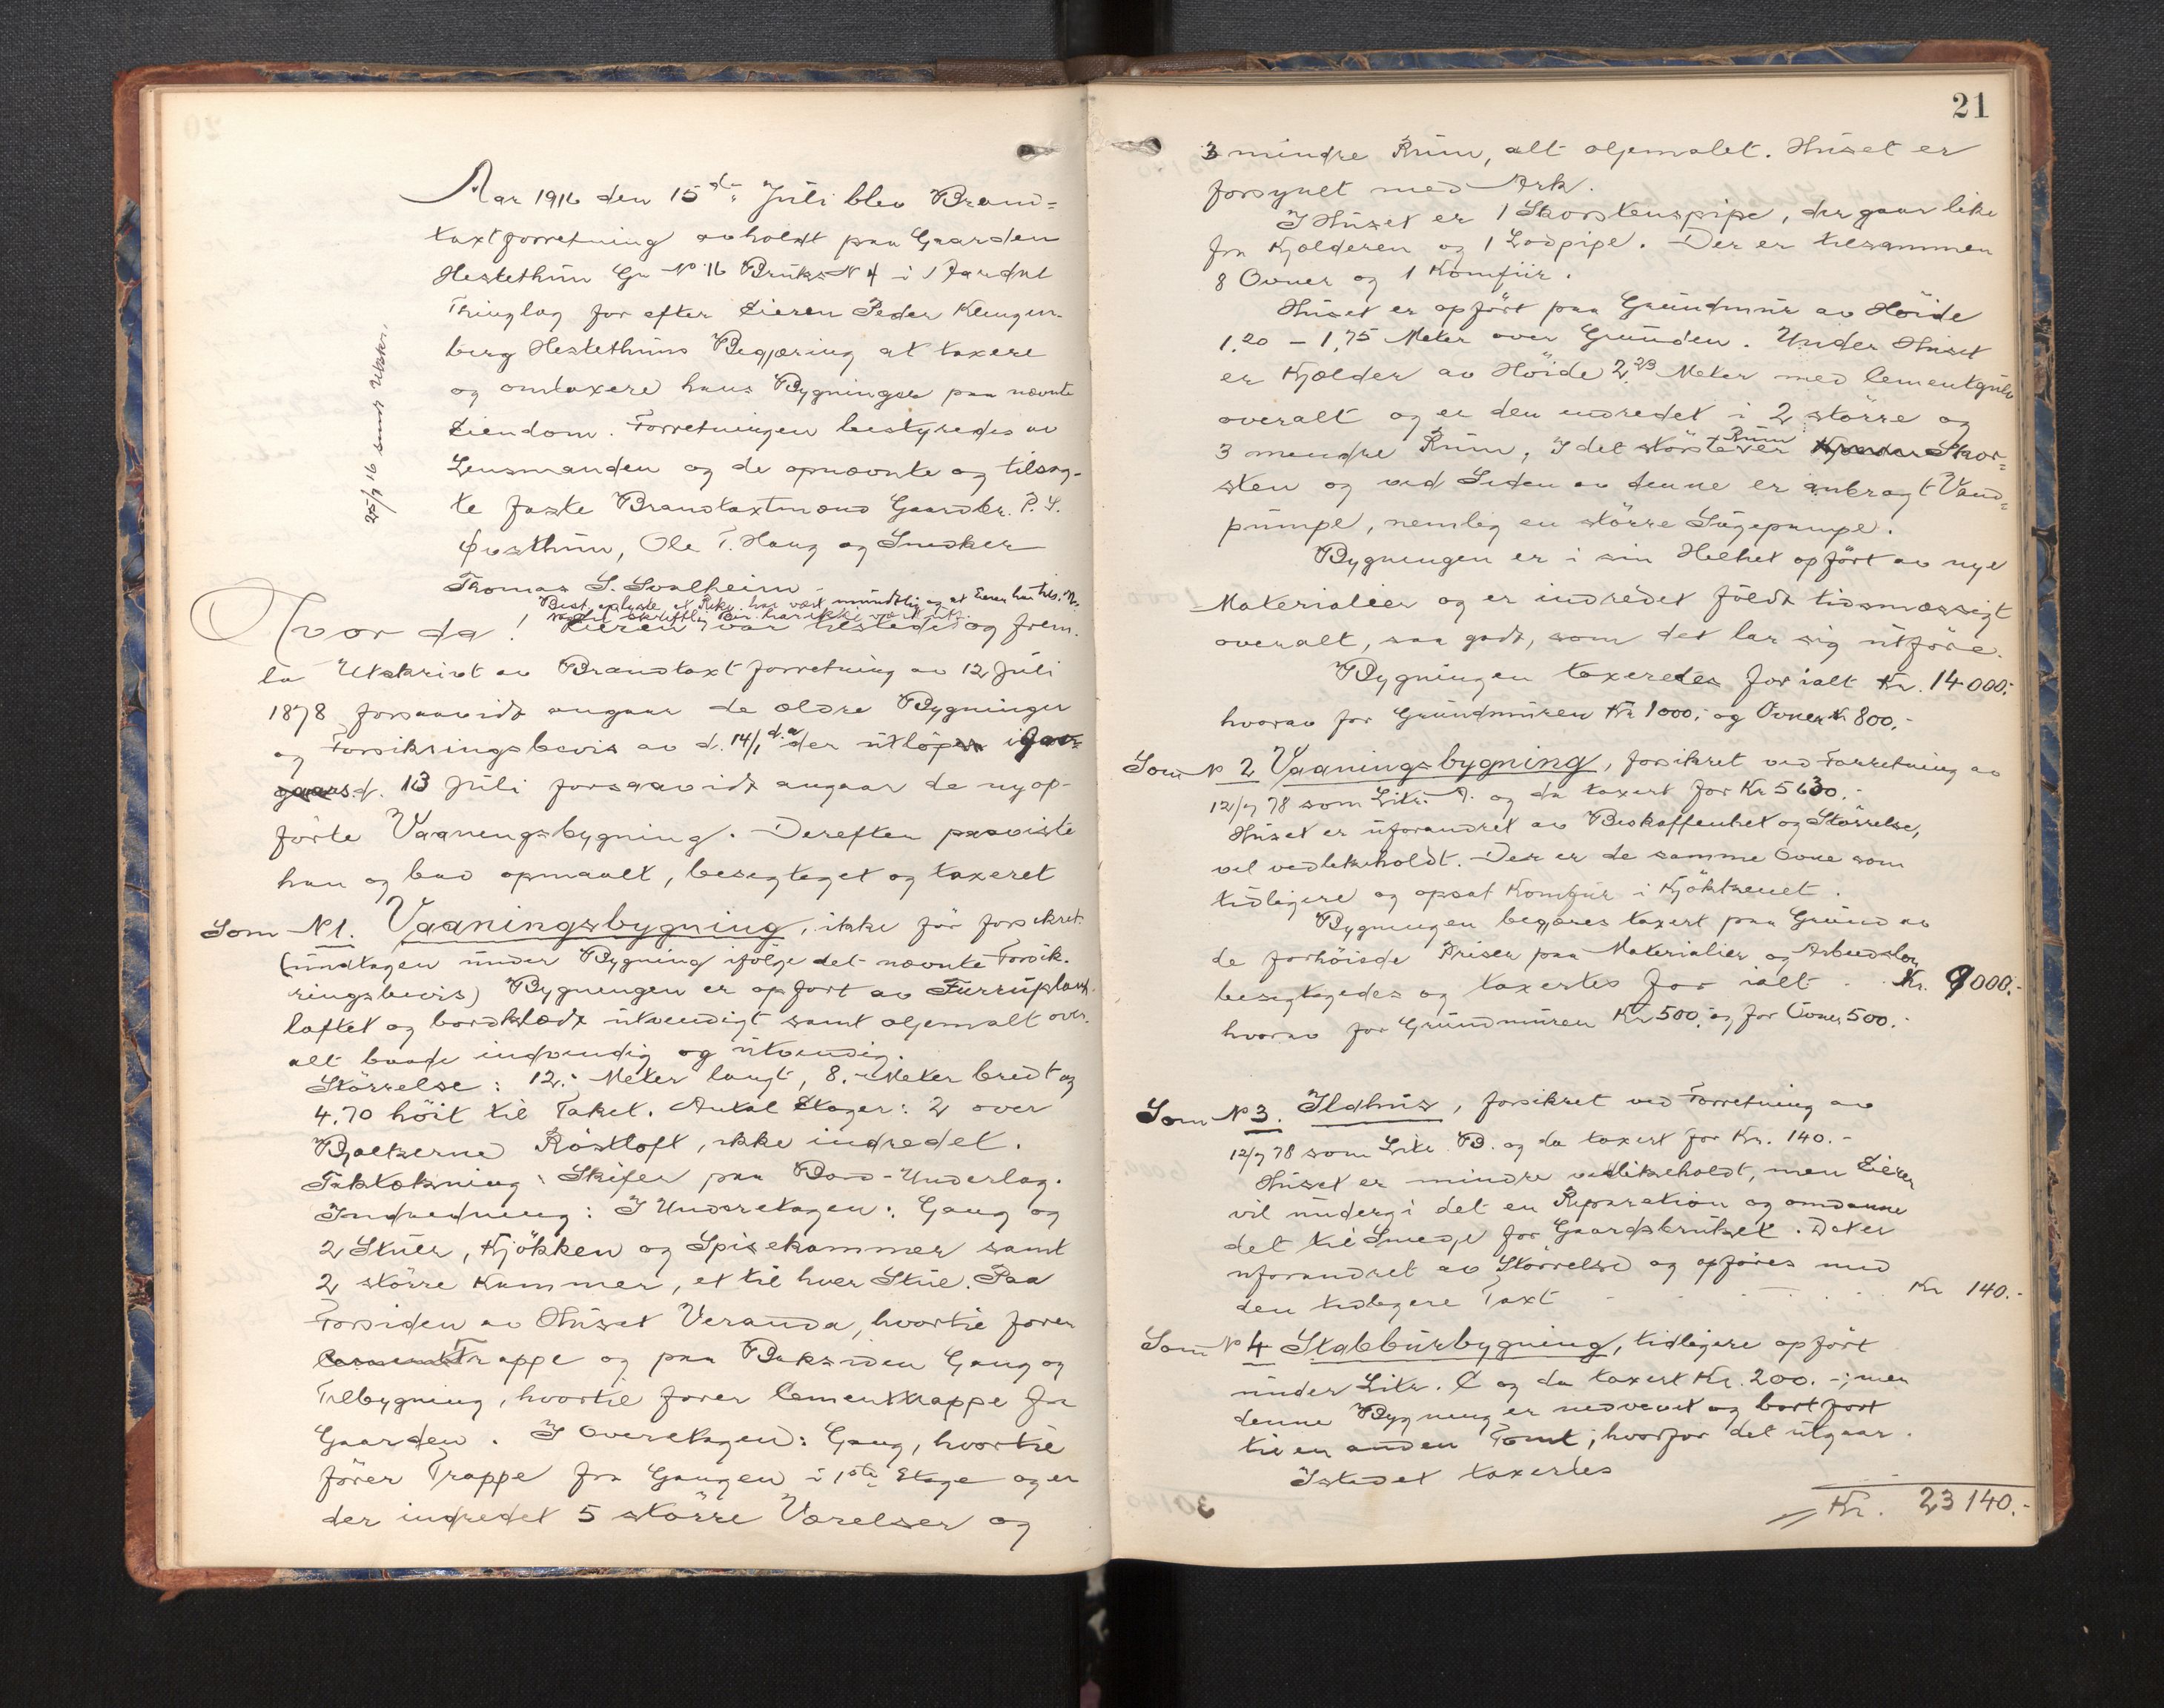 Aar 1916 den 15de Juli blev Brand=
taxtforretning avholdt paa Gaarden
Hestethun Gr No 16 Bruks No 4 i Aardal
Thinglag for efter Eieren Peder Klingen-
berg Hestethuns Begjæring at taxere
og omtaxere hans Bygninger paa nævnte
Eiendom. Forretningen bestyredes av
Lensmanden og de opnævnte og tilsag-
te faste Brandtaxtmænd Gaardbr. P. S.
Øvsthun, Ole T. Haug og Snedker
Thomas S. Svalheim.
25/7 16 sendt Utskr.
Best. oplyste, at Rekv. har vært mundtlig og at Eieren har
nogen skriftlig Ber. har ikke vært
Hvor da! Eieren var tilstede og frem-
la Utskrivt av Brandtaxtforretning av 12 Juli
1878 forsaavidt angaar de ældre Bygninger
og Forsikringsbevis av d. 14/1 d.a. der utløper i for-
gaars d. 13 Juli forsaavidt angaar de nyop-
førte Vaaningsbygning. Derefter paaviste
han og blev opmaalt, besigtiget og taxeret
Som No 1. Vaaningsbygning, ikke før forsikret.
(undtagen under Bygning ifølge det nævnte Forsik-
ringsbevis) Bygningen er opført av Furruplank
laftet og bordklædt utvendigt samt oljemalt over-
alt baade indvendig og utvendig.
Størrelse: 12.- Meter langt, 8.- Meter bredt og
4.70 høit til Taket. Antal Etager: 2 over
Bjælkerne Røstloft, ikke indredet.
Taktækning: Skifer paa Bord-Underlag.
Indredning: I Underetagen: Gang og
2 Stuer, Kjøkken og Spisekammer samt
2 større Kammer, et til hver Stue. Paa
Forsiden av Huset Veranda, hvortil fører
Trappe og paa Baksiden Gang og
Tilbygning, hvortil fører Cementtrappe fra
Gaarden. I Overetagen: Gang, hvortil
fører Trappe fra Gangen i 1ste Etage og er
der indredet 5 større Værelser og
21
3 mindre Rum, alt oljemalet. Huset er
forsynet med Ark.
I Huset er 1 Skorstenspipe, der gaar like
fra Kjælderen og 1 Lodpipe. Der er tilsammen
8 Ovner og 1 Komfür.
Huset er opført paa Grundmur av Høide
1.20 – 1.75 Meter over Grunden. Under Huset
er Kjælder av Høide 2.23 Meter med Cementgulv
overalt og er den indredet i 2 større og
3 mindre Rum, I det største Rum er Skor=
sten og ved Siden av denne er anbragt Vand=
pumpe, nemlig en større Sugepumpe.
Bygningen er i sin Helhet opført av nye
Materialier og er indredet fuldt tidsmæssigt
overalt, saa godt, som det lar sig utføre.
Bygningen taxeredes for ialt Kr. 14000.-
hvorav for Grundmuren Kr 1000.- og Ovner Kr 800.-
Som No 2 Vaaningsbygning, forsikret ved Forretning av
12/7 78 som Litr. A. og da taxert for Kr 5630.-
Huset er uforandret av Beskaffenhet og Størrelse,
vel vedlikeholdt. Der er de samme Ovne som
tidligere og opsat Komfur i Kjøkkenet.
Bygningen begjæres taxert paa Grund av
de forhøiede Priser paa Materialier og Arbeidsløn
besigtigedes og taxertes for ialt . . Kr. 9000.-
hvorav for Grundmuren Kr 500.- og for Ovner 500.-
Som No 3. Ildhus, forsikret ved Forretning av
12/7 78 som Litr. B. og da taxert for Kr. 140.-
Huset er mindre vedlikeholdt, men Eieren
vil undergi det en Reparation og omdanne
det til Smedje for Gaardsbruket. Det er
uforandret av Størrelse og opføres med
den tidligere Taxt . . . . Kr 140.-
Som No 4 Stabbursbygning, tidligere opført
under Litr. C og da taxert Kr. 200.-; men
denne Bygning er nedrevet og bortført
til en anden Tomt; hvorfor det utgaar.
Istedet taxertes
Kr. 23140.-